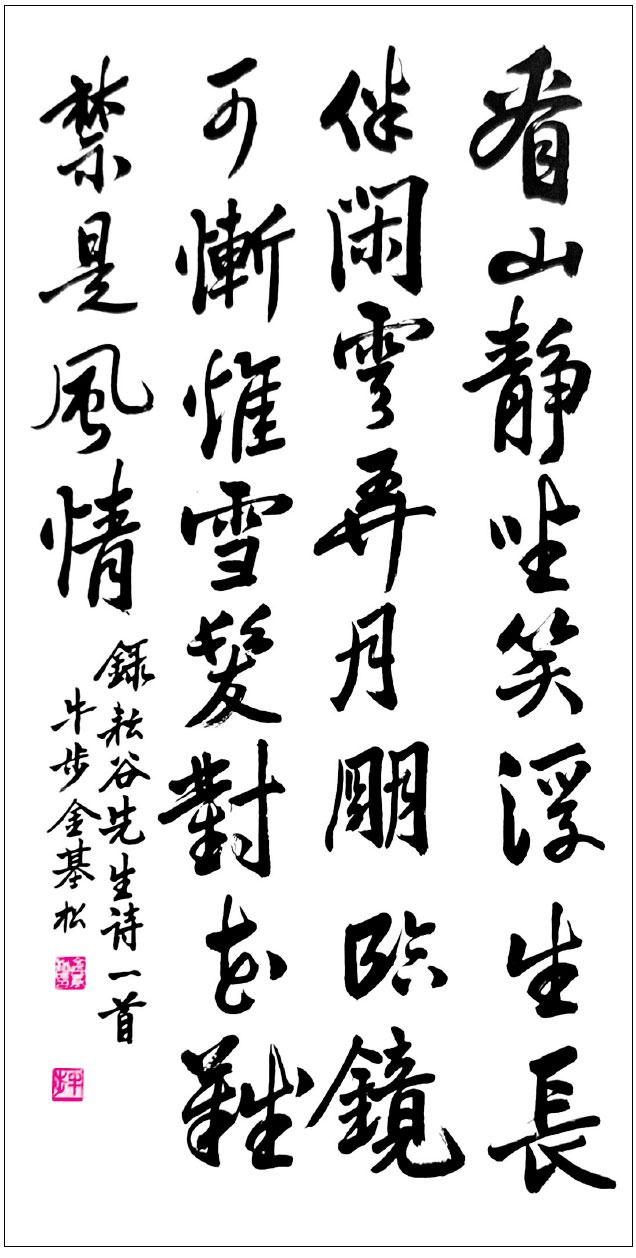 看山靜坐笑浮生長
伴閑雲弄月明臨鏡
可慚惟雪髮對花難
禁是風情
錄耘谷先生詩一首
牛步金基松